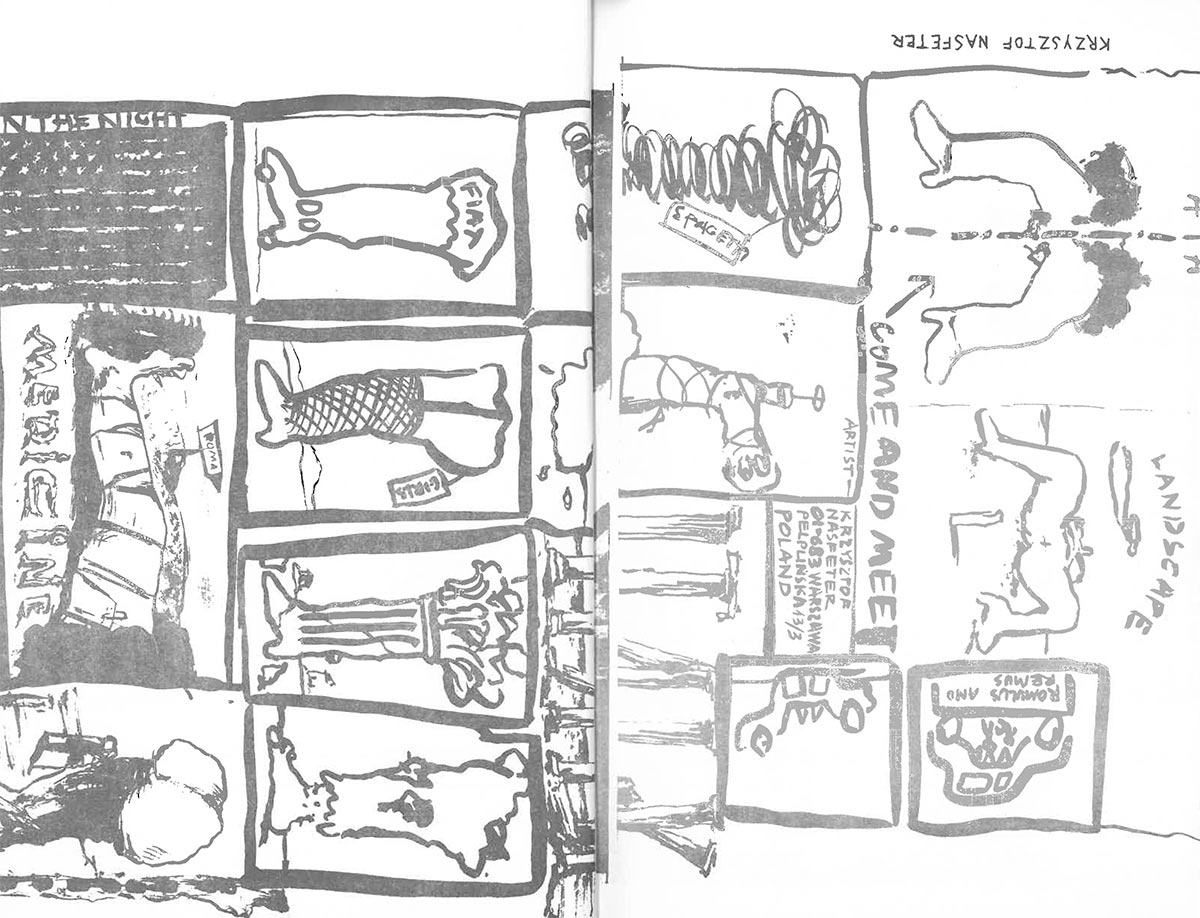 N THE NIGHT
FIAT
MEDICINE
ROMA
GIRLS
KRZYSZTOF NASFETER
COME AND MEET
ARTIST—
KRZYSZTOF
NASFETER
01-683 WARSZAWA
PELPLINSKA 3/3
POLAND
LANDSCAPE
ROMULUS AND
REMUS